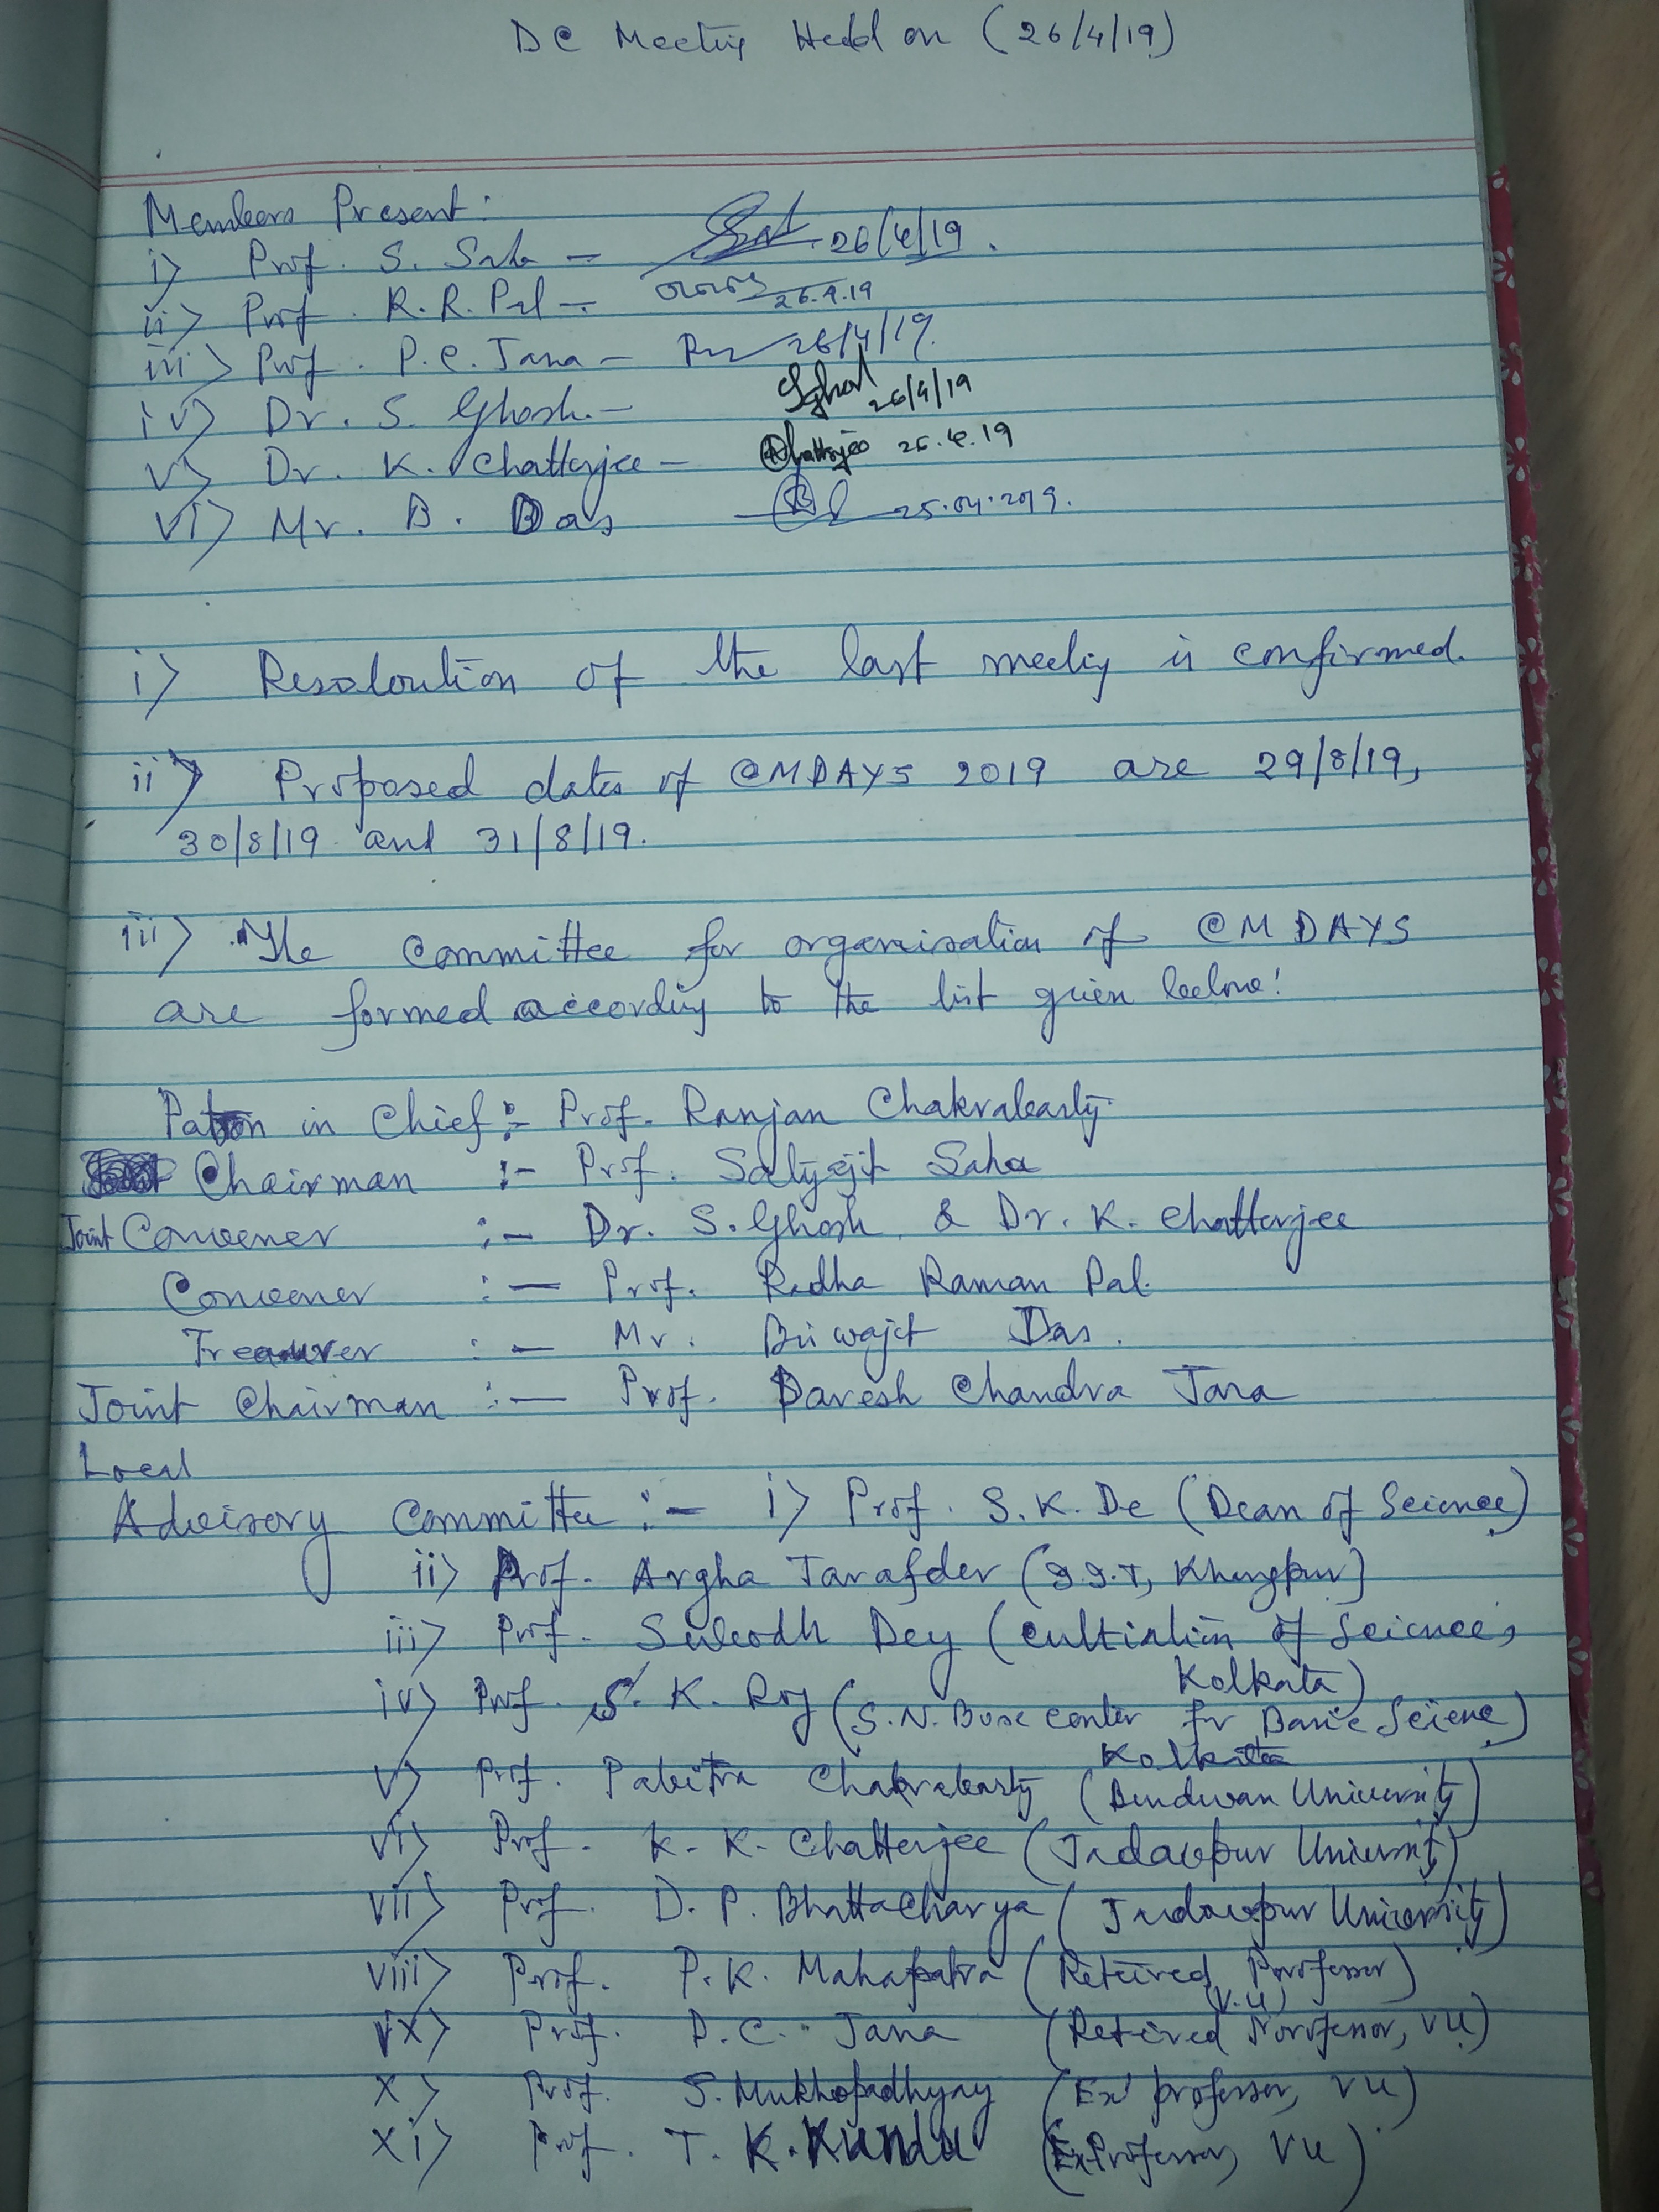 DC Meeting Held on (26/4/19)
Members Present:
i) Prof. S. Saha - 26/4/19.
ii) Prof. R.R. Pal - 26.4.19
iii) Prof. P.C. Jana - 26/4/19.
iv) Dr. S. Ghosh. - SGhosh 26/4/19
v) Dr. K. Chatterjee - KChatterjee 26.4.19
vi) Mr. B. Das 25.04.2019.
i) Resoloution of the last meeting is confirmed.
ii) Proposed dates of CMDAYS 2019 are 29/8/19,
30/8/19 and 31/8/19.
iii) The Committee for organisation of CMDAYS
are formed according to the list given below!
Patron in Chief :- Prof. Ranjan Chakrabarty.
Chairman :- Prof. Satyajit Saha
Joint Convener :- Dr. S. Ghosh & Dr. K. Chatterjee
Convener :- Prof. Radha Raman Pal.
Treasurer :- Mr. Biswajit Das.
Joint Chairman :- Prof. Paresh Chandra Jana
Local
Advisory Committee :- i) Prof. S.K. De (Dean of Science)
ii) Prof. Argha Tarafder (I.I.T, Kharagpur)
iii) Prof. Subodh Dey (Cultivation of Science,
Kolkata)
iv) Prof. S. K. Roy (S.N. Bose center for Basic Science)
Kolkata
v) Prof. Pabitra Chakrabarty (Burdwan University)
vi) Prof. K. K. Chatterjee (Jadavpur University)
vii) Prof. D. P. Bhattacharya (Jadavpur University)
viii) Prof. P.K. Mahapatra (Reteired Professor)
(V.U)
ix) Prof. D.C. Jana (Retired Professor, VU)
x) Prof. S. Mukhopadhyay (Ex professor, VU)
xi) Prof. T. K. Kundu (Ex Professor, VU)